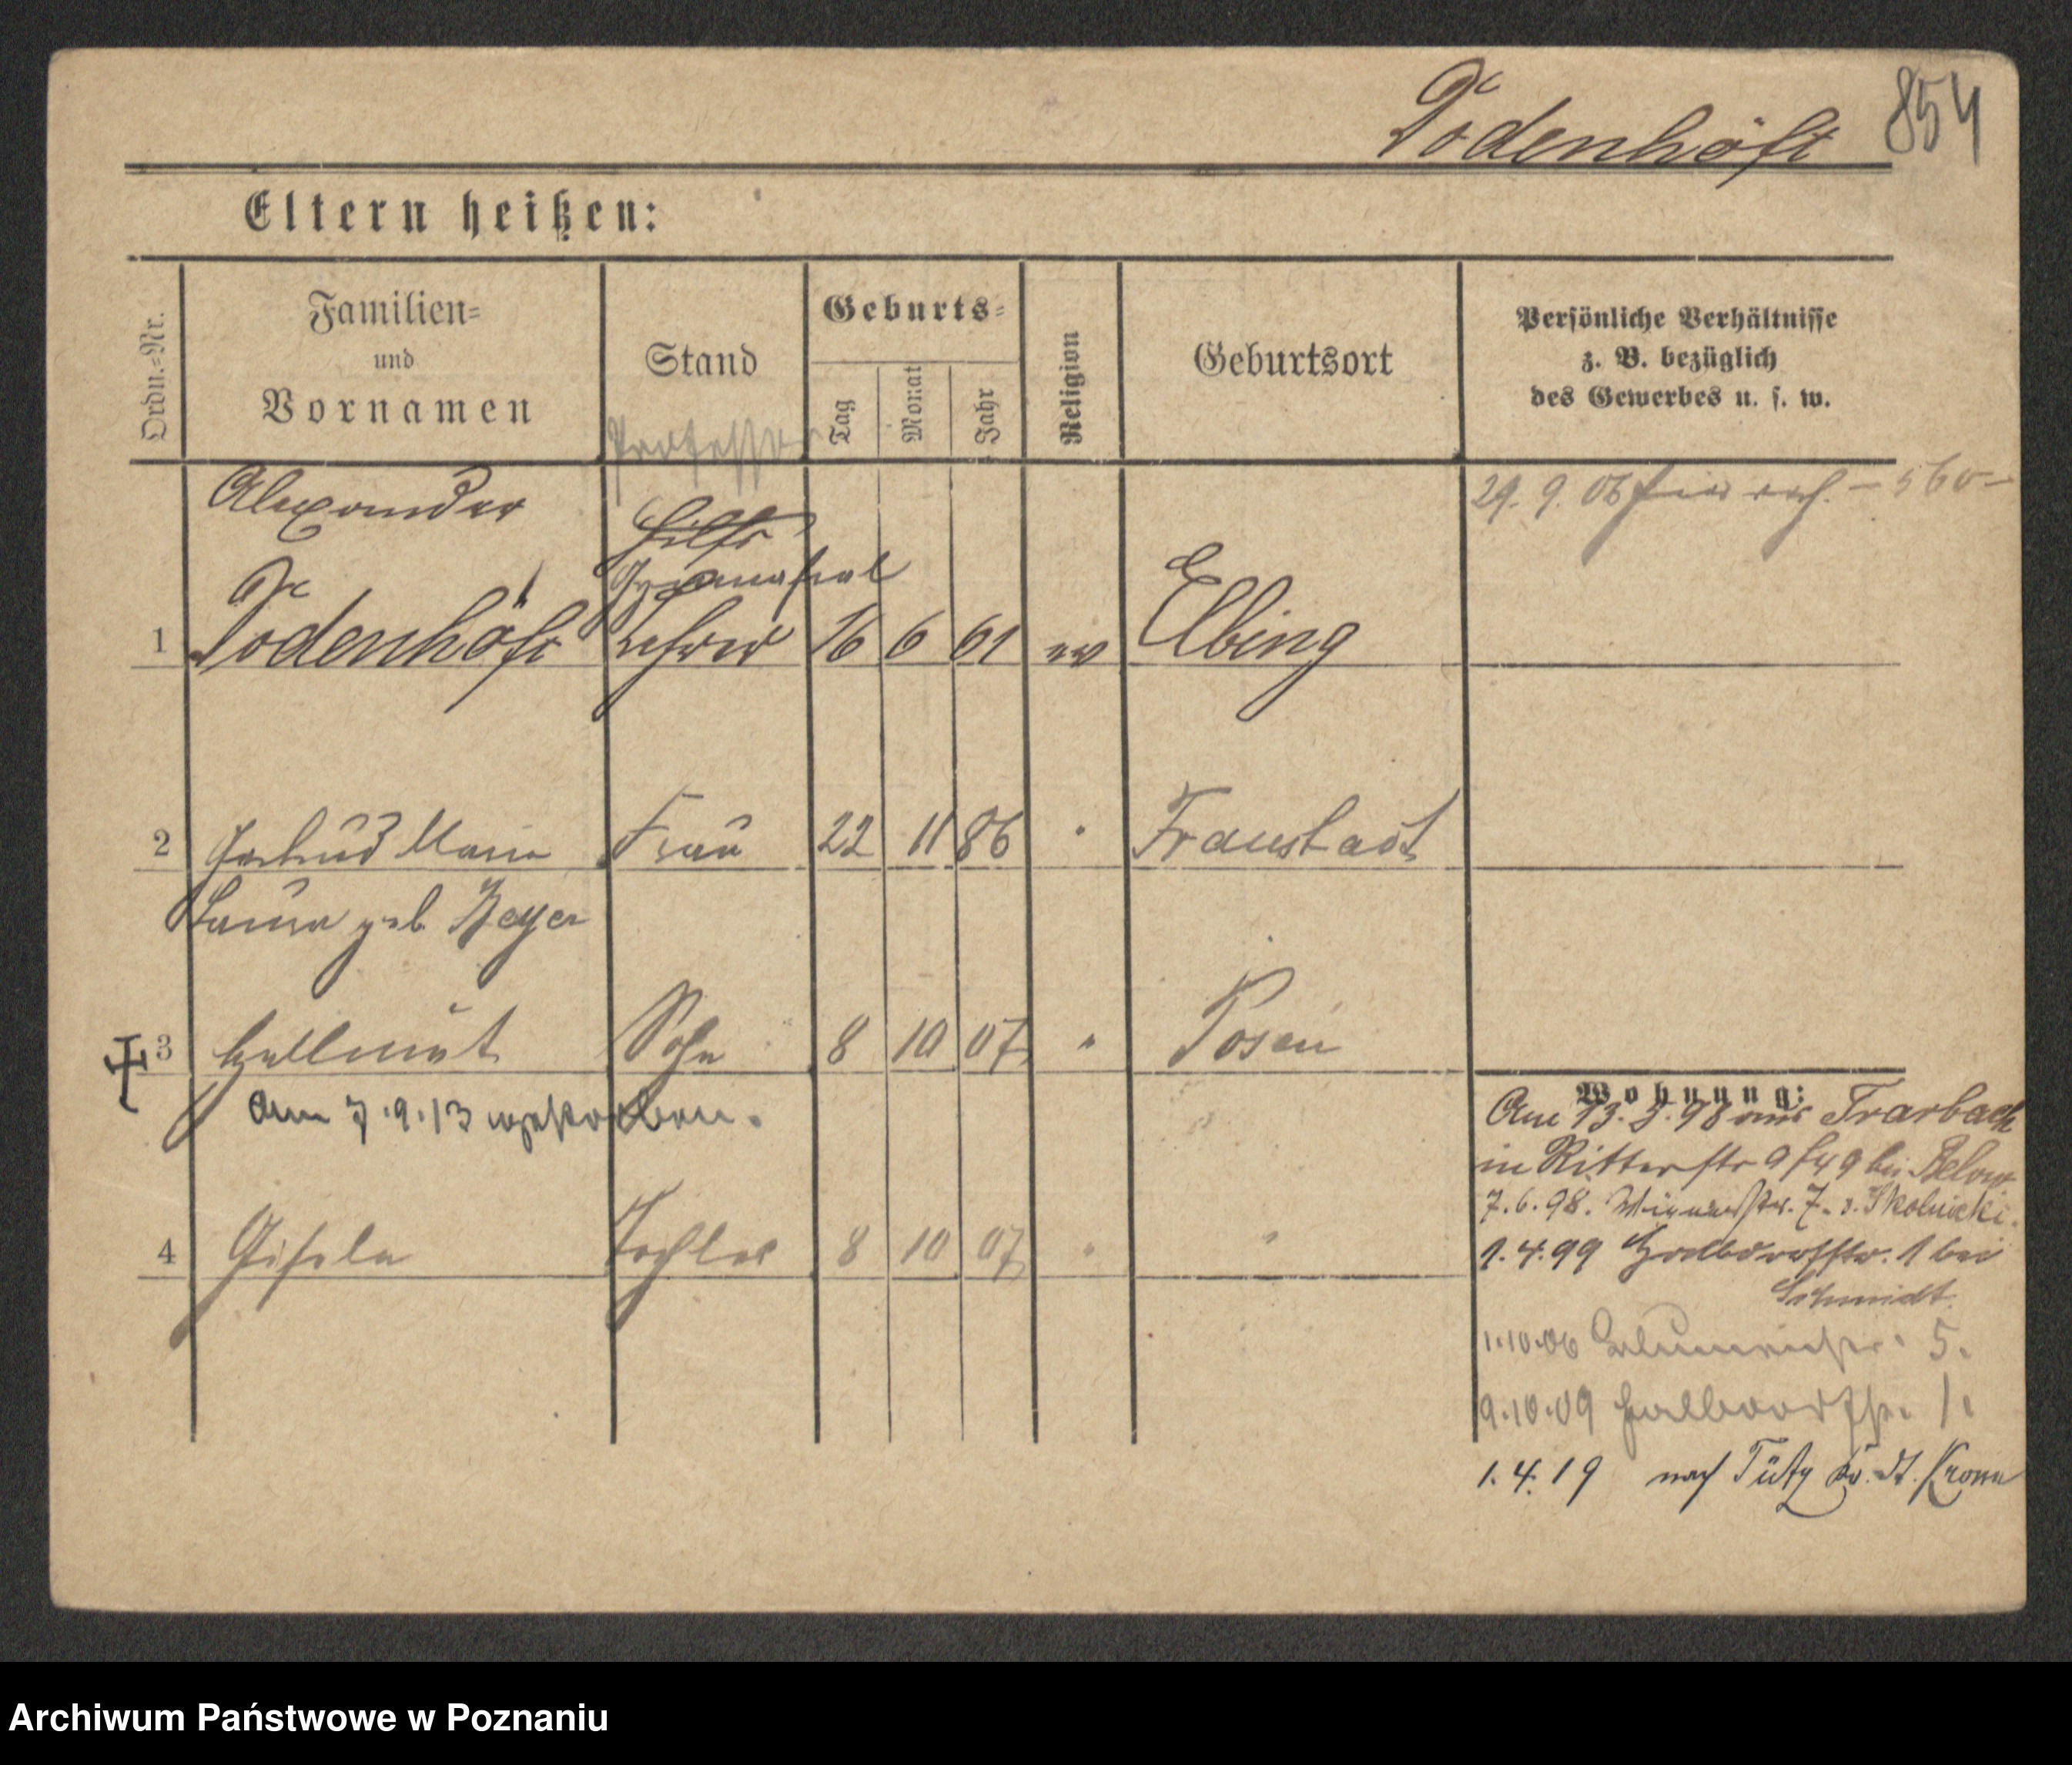 Todenhöft 854
Eltern heißen:
Ordn.-Nr.
Familien=
und
Vornamen
Stand
Geburts=
Tag
Monat
Jahr
Religion
Geburtsort
Persönliche Verhältnisse
z. B. bezüglich
des Gewerbes u. s. w.
Professor
Alexander
29. 9. 06
Hilfs
Gymnasial
1 Todenhöft Lehrer 16 6 61 ev Elbing
2 Gertrud Maria Frau 22 11 86 " Fraustadt
Laura geb. Beyer
3 Hellmut Sohn 8 10 07 " Posen
am 7.9.13 gestorben.
4 Gisela Tochter 8 10 07 " "
Wohnung:
Am 13. 3. 98 aus Trarbach
in Ritterstr 9 bei Below
7. 6. 98. 7. Skolnicki.
1. 4. 99 Halbdorfstr. 1 bei
Schmidt.
1.10.06 Blumenstr. 5.
9.10.09 Halbdorfstr. 1.
1. 4. 19 nach Tütz Kr. Dt. Krone
Archiwum Państwowe w Poznaniu